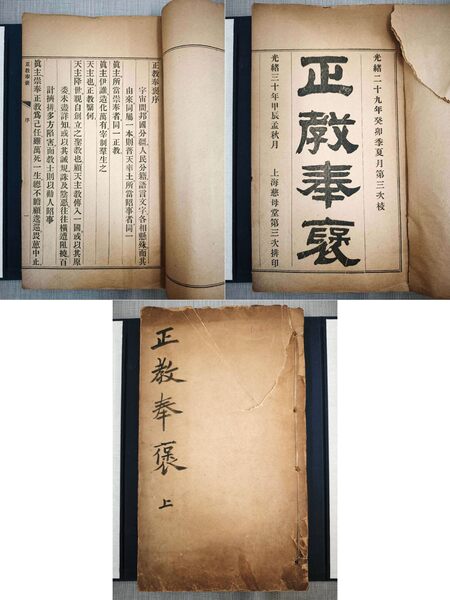 正教奉褒序
宇宙間邦國分疆人民分籍語言文字各相懸殊而其
由來同屬一本則普天率土所當昭事者同一
眞主所當崇奉者同一正教
眞主伊誰造化萬有宰制羣生之
天主也正教繄何
天主降世親自創立之聖教也顧天主教傳入一國或以其原
委未盡詳知或以其誡規誅及陰慝往往橫遭阻撓百
計擠排多方陷害而教士則以勸人昭事
眞主崇奉正教爲己任雖萬死一生總不瞻顧逡巡畏葸中止
正教奉褒 序
光緒二十九年癸卯季夏月第三次校
正教奉褒
光緒三十年甲辰孟秋月 上海慈母堂第三次排印
正教奉褒
上